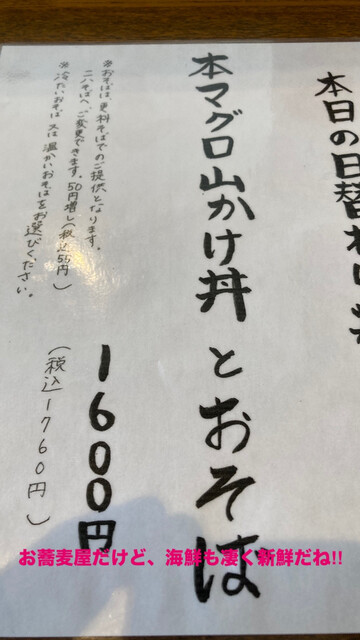 本日の日替わり
本マグロ山かけ丼とおそば
1600円
(税込1760円)
※おそばは、更科そばでのご提供となります。
二八そばへ、ご変更できます。50円増し(税込55円)
※冷たいおそば又は温かいおそばをお選びください。
お蕎麦屋だけど、海鮮も凄く新鮮だね!!